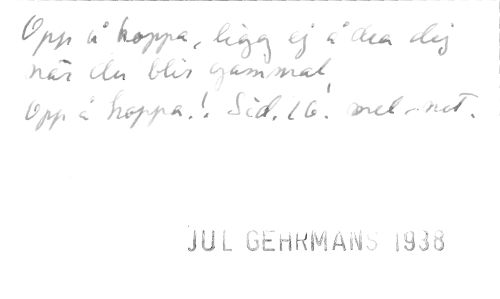 Opp å hoppa, ligg ej å dra dig
när du blir gammal
opp å hoppa! Sid. 16. mel-not.
JUL GEHRMANS 1938